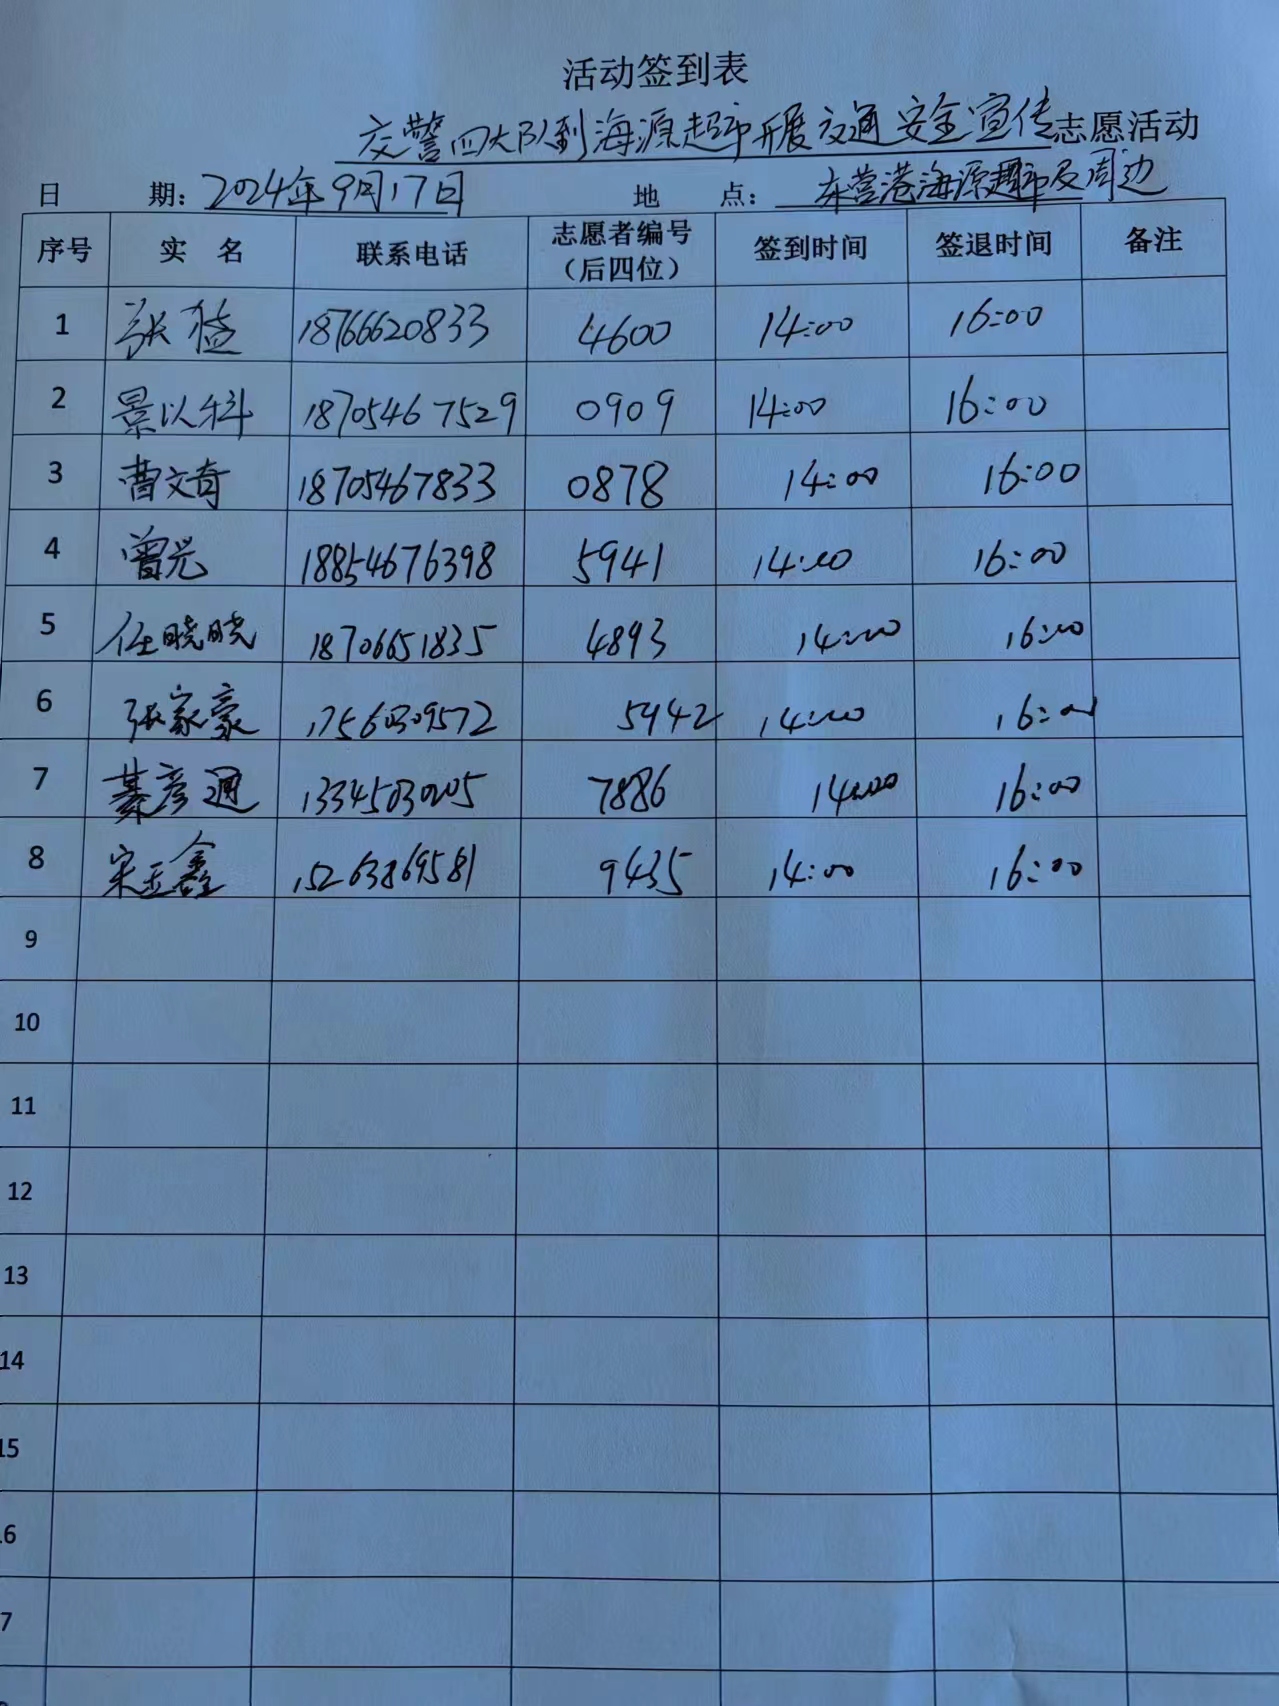 活动签到表
交警四大队到海源超市开展交通安全宣传志愿活动
日 期：2024年9月17日 地 点：东营港海源超市及周边
序号 实 名 联系电话 志愿者编号（后四位） 签到时间 签退时间 备注
1 张猛 18766620833 4600 14:00 16:00
2 景以科 18705467529 0909 14:00 16:00
3 曹文奇 18705467833 0878 14:00 16:00
4 曾光 18854676398 5941 14:00 16:00
5 任晓晓 18706651835 4893 14:00 16:00
6 张家豪 17560309572 5942 14:00 16:00
7 綦彦通 13345030205 7886 14:00 16:00
8 宋玉鑫 15263869581 9435 14:00 16:00
9
10
11
12
13
14
15
16
7